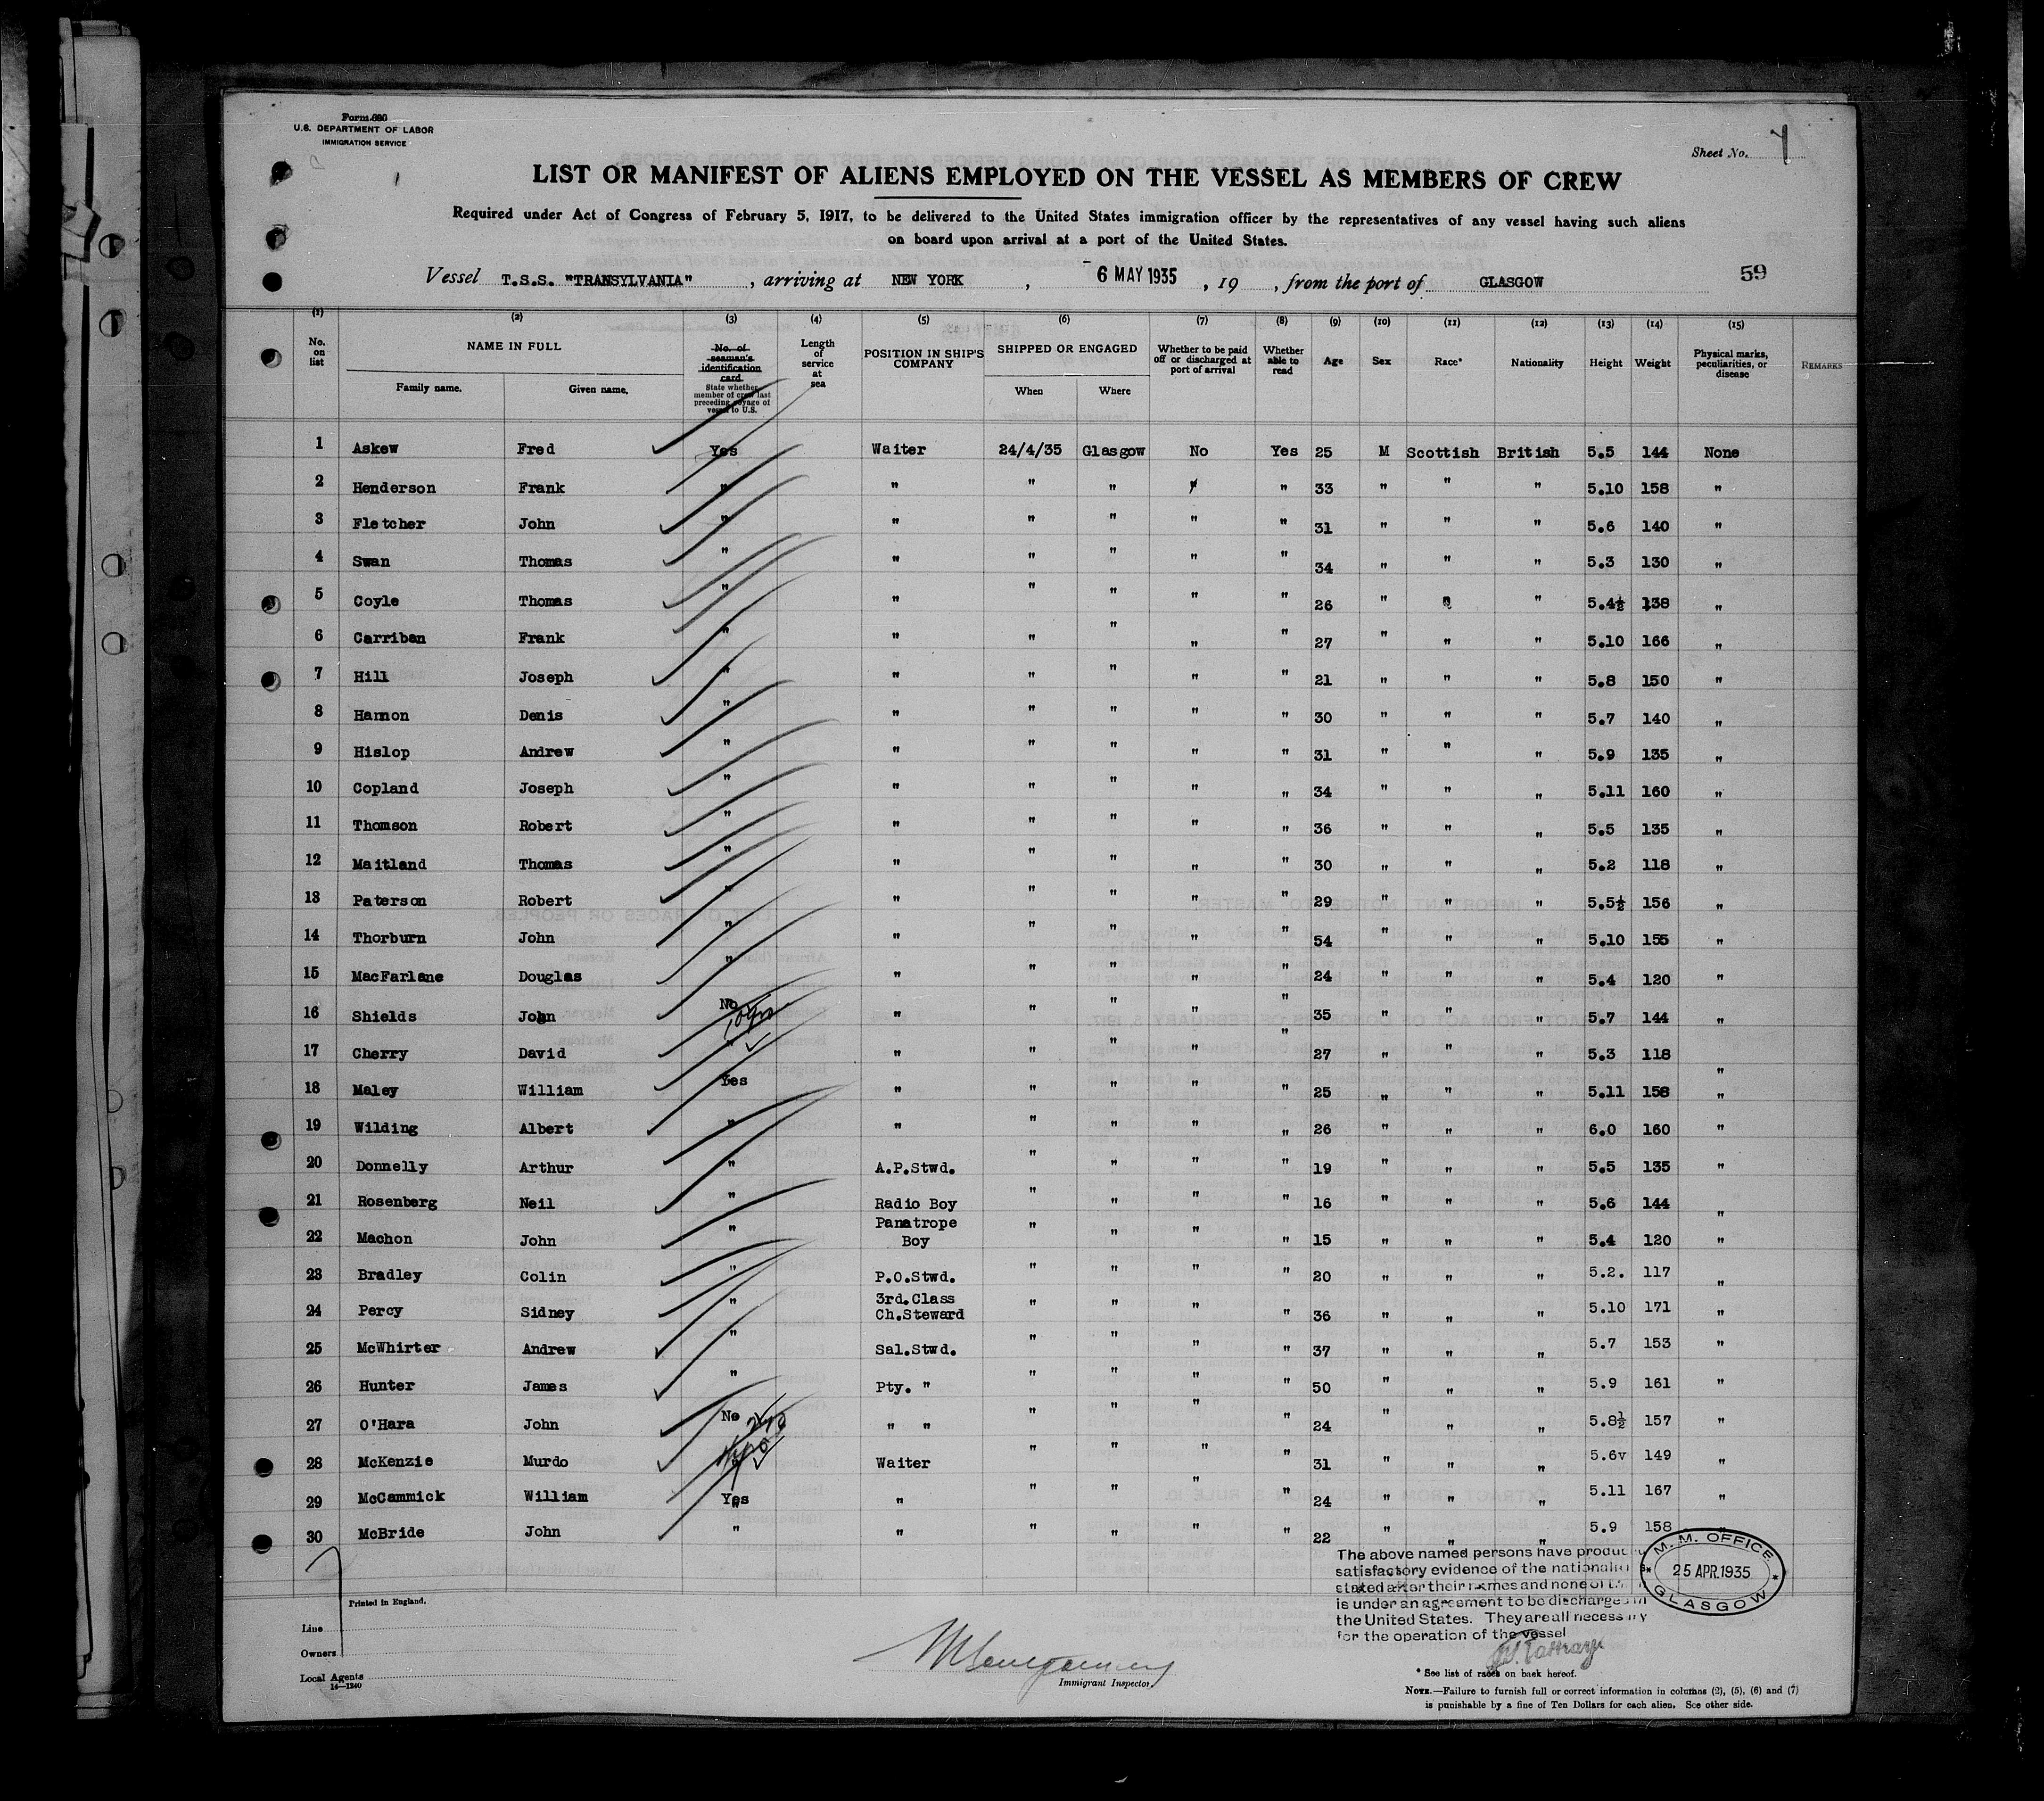 Form 680
U.S. DEPARTMENT OF LABOR
IMMIGRATION SERVICE
Sheet No.
LIST OR MANIFEST OF ALIENS EMPLOYED ON THE VESSEL AS MEMBERS OF CREW
Required under Act of Congress of February 5, 1917, to be delivered to the United States immigration officer by the representatives of any vessel having such aliens
on board upon arrival at a port of the United States.
Vessel T.S.S. "TRANSYLVANIA", arriving at NEW YORK, 6 MAY 1935, 19 , from the port of GLASGOW 59
(1) (2) (3) (4) (5) (6) (7) (8) (9) (10) (11) (12) (13) (14) (15)
No. on list NAME IN FULL Family name. Given name. No. of seaman's identification card. State whether member of crew last preceding voyage of vessel to U.S. Length of service at sea POSITION IN SHIP'S COMPANY SHIPPED OR ENGAGED When Where Whether to be paid off or discharged at port of arrival Whether able to read Age Sex Race* Nationality Height Weight Physical marks, peculiarities, or disease REMARKS
1 Askew Fred Yes Waiter 24/4/35 Glasgow No Yes 25 M Scottish British 5.5 144 None
2 Henderson Frank " " " " " " 33 " " " 5.10 158 "
3 Fletcher John " " " " " " 31 " " " 5.6 140 "
4 Swan Thomas " " " " " " 34 " " " 5.3 130 "
5 Coyle Thomas " " " " " " 26 " " " 5.4½ 138 "
6 Carriban Frank " " " " " " 27 " " " 5.10 166 "
7 Hill Joseph " " " " " " 21 " " " 5.8 150 "
8 Hannon Denis " " " " " " 30 " " " 5.7 140 "
9 Hislop Andrew " " " " " " 31 " " " 5.9 135 "
10 Copland Joseph " " " " " " 34 " " " 5.11 160 "
11 Thomson Robert " " " " " " 36 " " " 5.5 135 "
12 Maitland Thomas " " " " " " 30 " " " 5.2 118 "
13 Paterson Robert " " " " " " 29 " " " 5.5½ 156 "
14 Thorburn John " " " " " " 54 " " " 5.10 155 "
15 MacFarlane Douglas " " " " " " 24 " " " 5.4 120 "
16 Shields John No " " " " " 35 " " " 5.7 144 "
17 Cherry David " " " " " " 27 " " " 5.3 118 "
18 Maley William Yes " " " " " 25 " " " 5.11 158 "
19 Wilding Albert " " " " " " 26 " " " 6.0 160 "
20 Donnelly Arthur " A.P.Stwd. " " " " 19 " " " 5.5 135 "
21 Rosenberg Neil " Radio Boy " " " " 16 " " " 5.6 144 "
22 Machon John " Panatrope Boy " " " " 15 " " " 5.4 120 "
23 Bradley Colin " P.O.Stwd. " " " " 20 " " " 5.2. 117 "
24 Percy Sidney " 3rd.Class Ch.Steward " " " " 36 " " " 5.10 171 "
25 McWhirter Andrew " Sal.Stwd. " " " " 37 " " " 5.7 153 "
26 Hunter James " Pty. " " " " " 50 " " " 5.9 161 "
27 O'Hara John No " " " " " " 24 " " " 5.8½ 157 "
28 McKenzie Murdo " Waiter " " " " 31 " " " 5.6v 149 "
29 McCammick William Yes " " " " " 24 " " " 5.11 167 "
30 McBride John " " " " " " 22 " " " 5.9 158 "
The above named persons have produc
satisfactory evidence of the nationalit
stated after their names and none of t
is under an agreement to be discharged in
the United States. They are all necessary
for the operation of the vessel
M.M. OFFICE
25 APR.1935
GLASGOW
Printed in England.
Line
Owners
Local Agents
14—1240
Immigrant Inspector.
* See list of races on back hereof.
NOTE.—Failure to furnish full or correct information in columns (2), (5), (6) and (7)
is punishable by a fine of Ten Dollars for each alien. See other side.